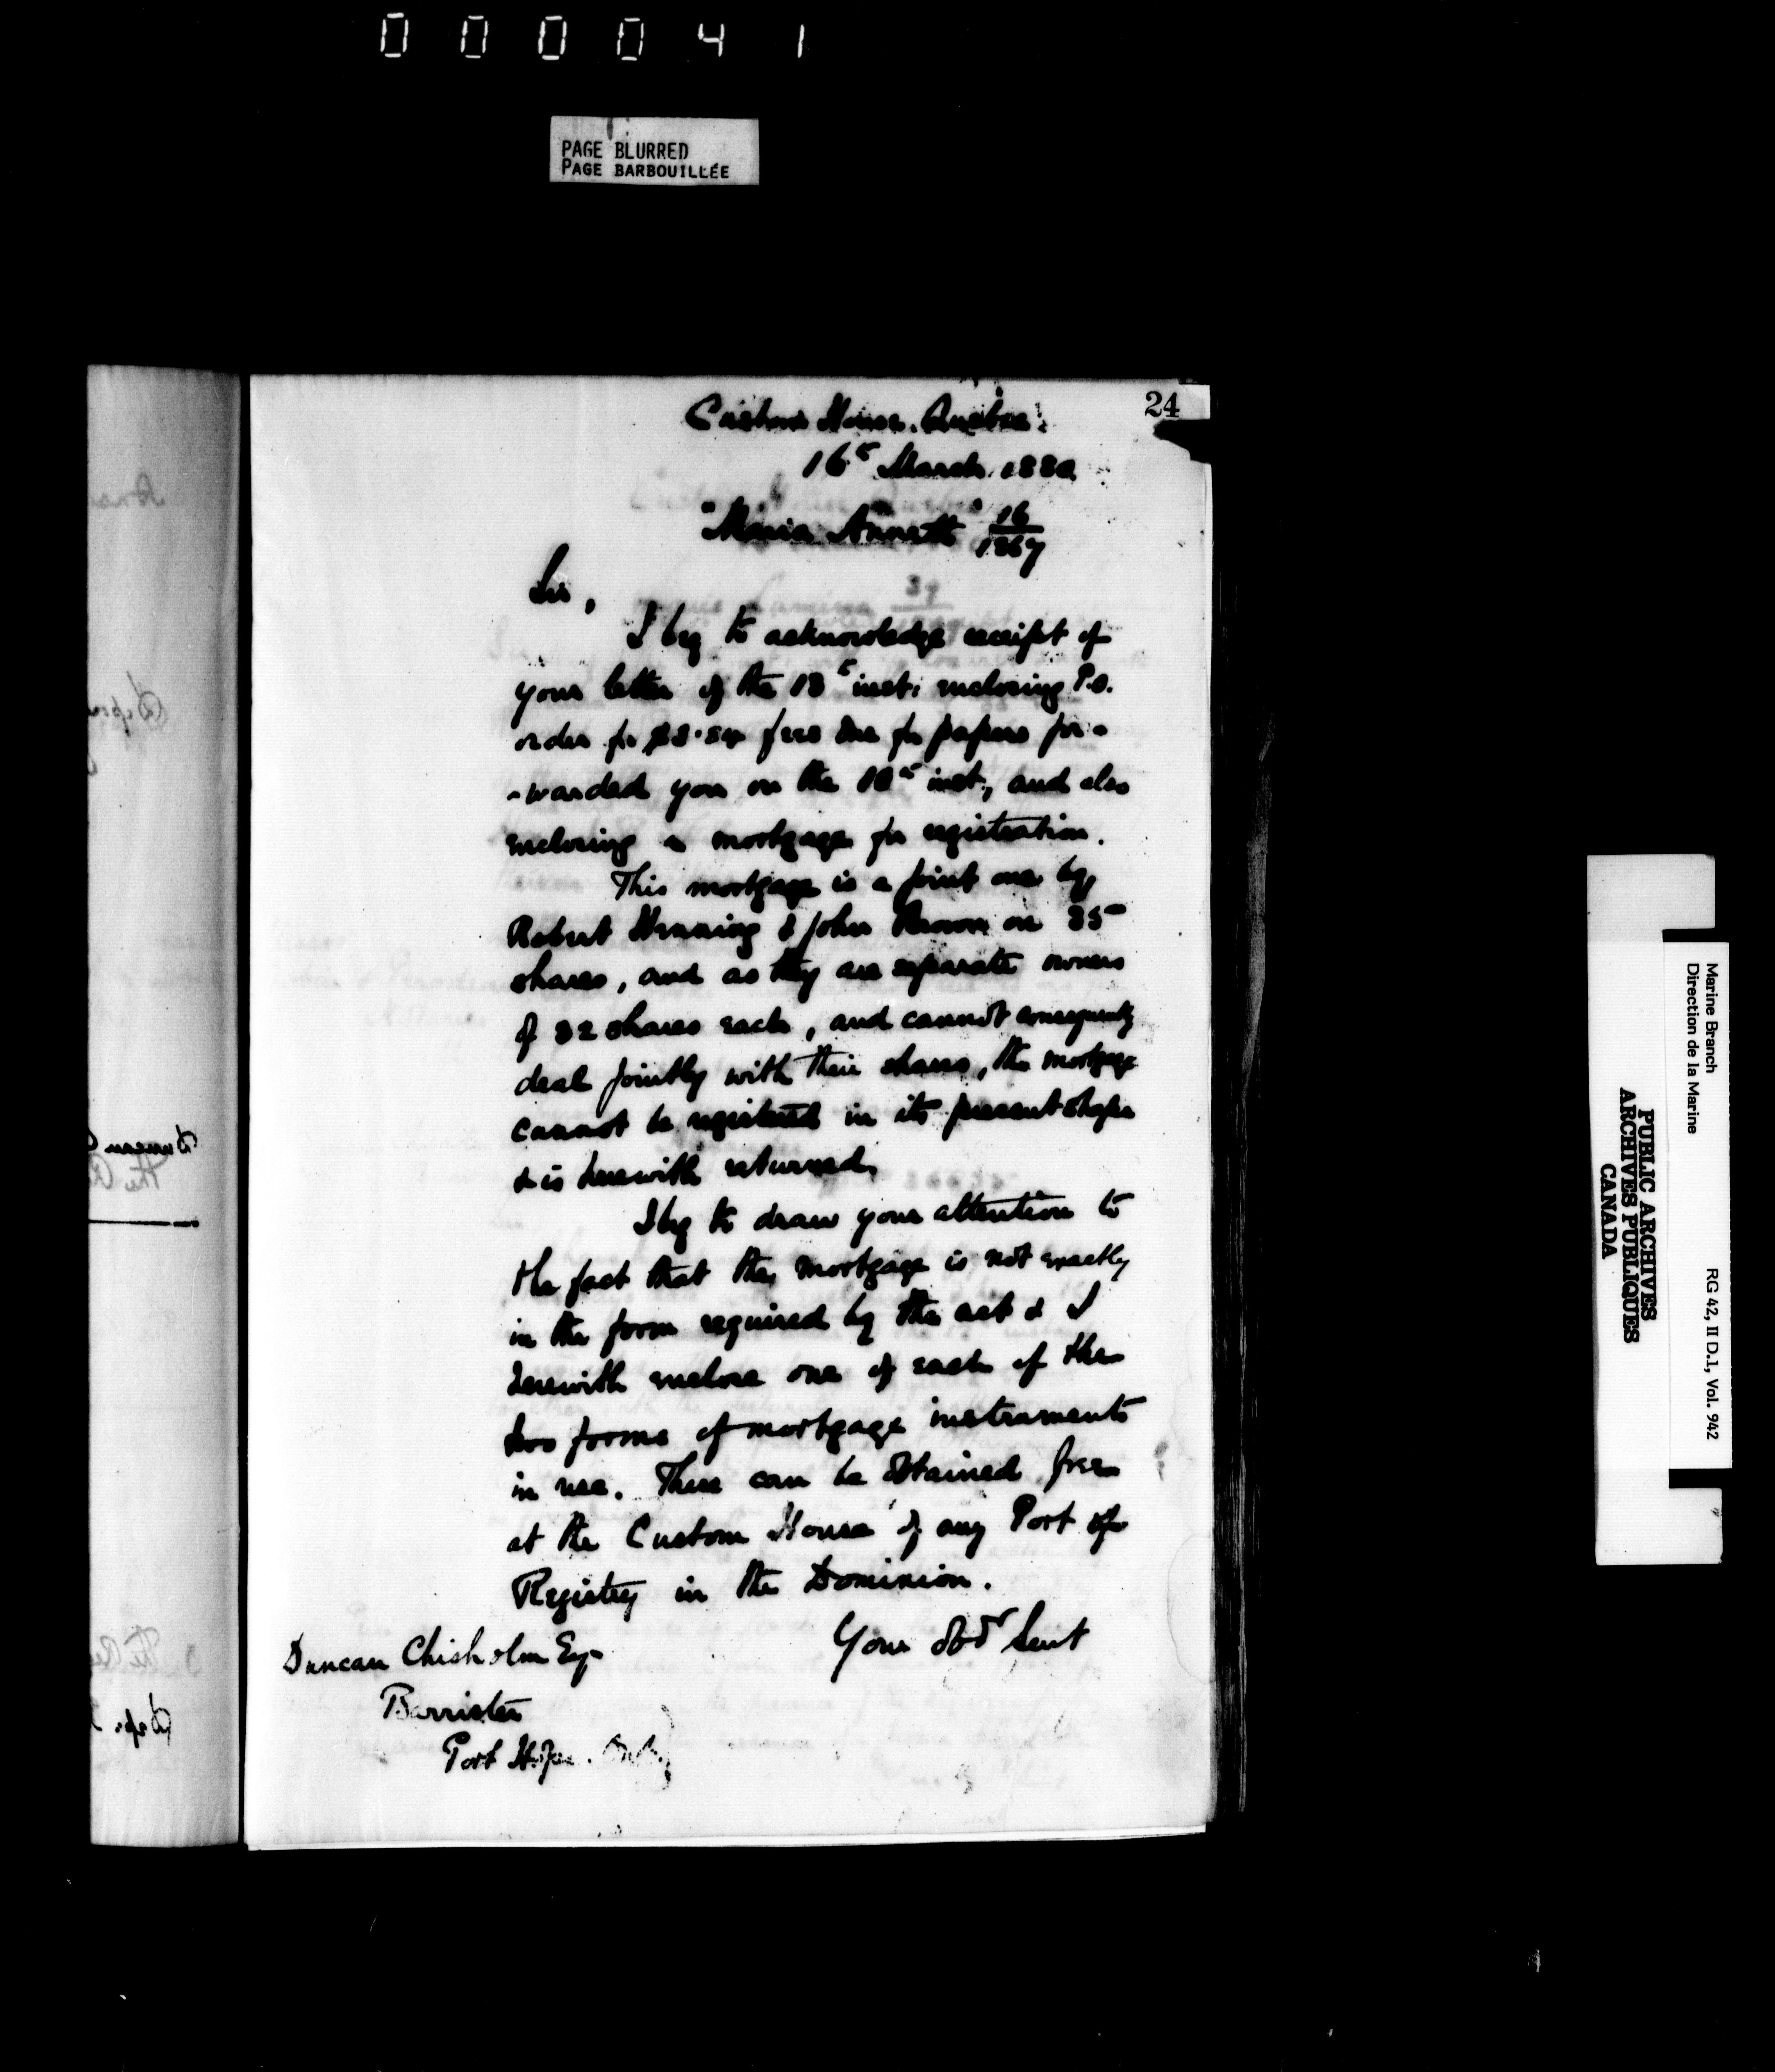 000041
PAGE BLURRED
PAGE BARBOUILLÉE
24
Custom House. Quebec.
16t March 1880
"Maria Annett" 16/1867
Sir,
I beg to acknowledge receipt of
your letter of the 13t inst: enclosing P.O.
order for fees due for papers for-
-warded you on the 10t inst, and also
enclosing a mortgage for registration.
This mortgage is a joint one by
Robert Henning & John Brown on 35
shares, and as they are separate owners
of 32 shares each, and cannot consequently
deal jointly with their shares, the mortgage
cannot be registered in its present shape
& is herewith returned.
I beg to draw your attention to
the fact that the mortgage is not exactly
in the form required by the act & I
herewith enclose one of each of the
two forms of mortgage instruments
in use. These can be obtained free
at the Custom House of any Port of
Registry in the Dominion.
Your obdt Servt
Duncan Chisholm Esq
Barrister
Port Hope. Ont.
Marine Branch
Direction de la Marine
RG 42, II D.1, Vol. 942
PUBLIC ARCHIVES
ARCHIVES PUBLIQUES
CANADA